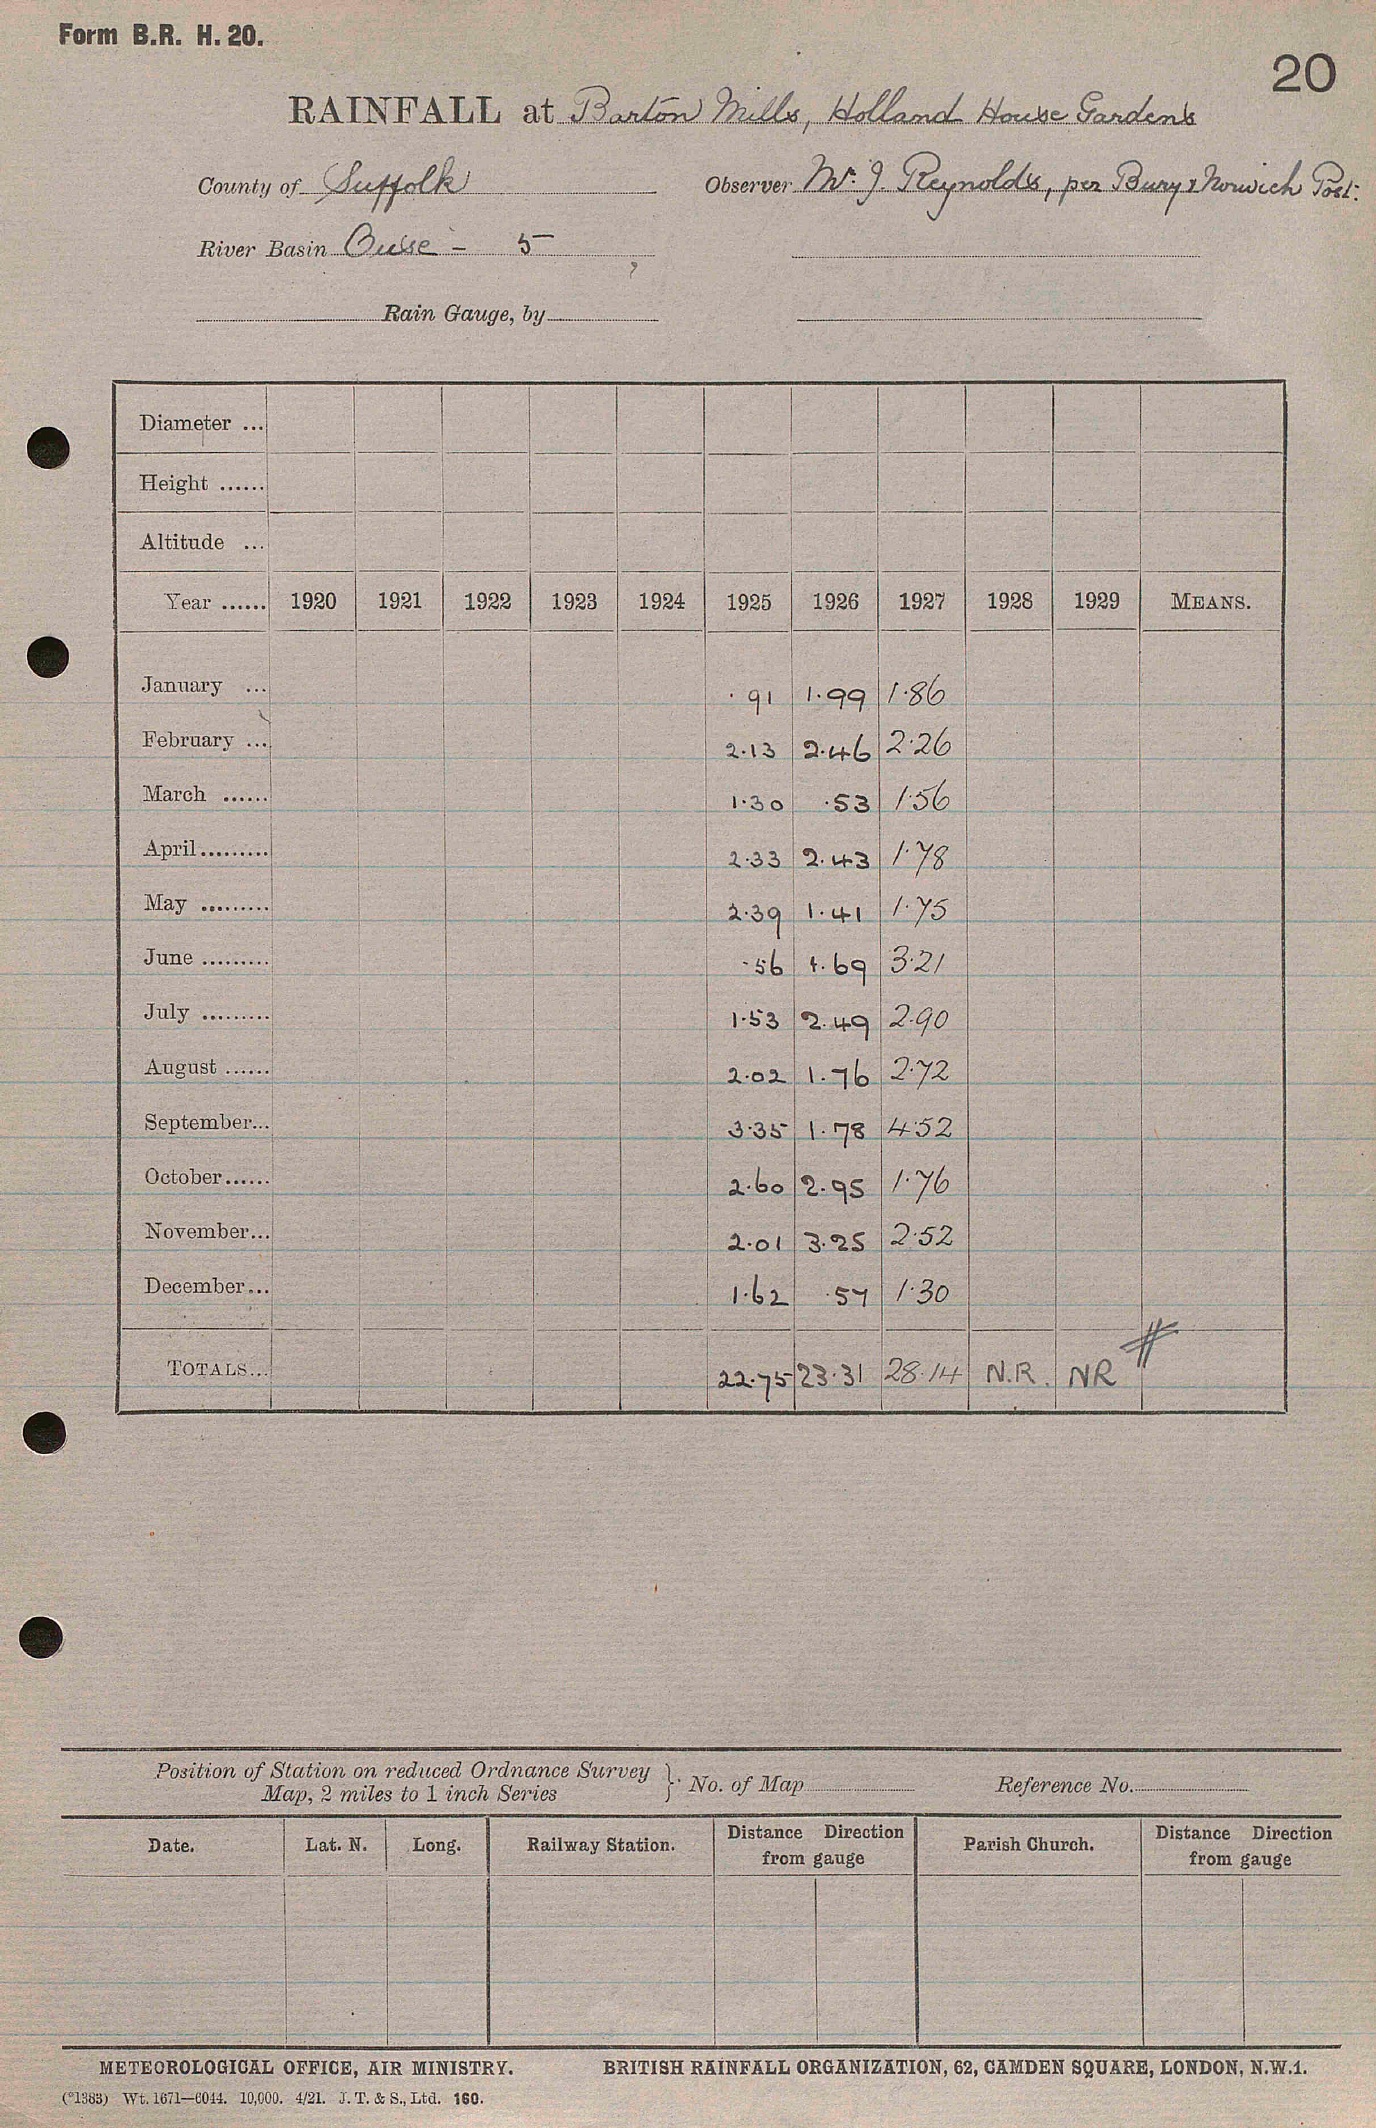 Form B.R. H. 20.
20
RAINFALL at Barton Mills, Holland House Gardens
County of Suffolk Observer Mr. J. Reynolds, per Bury & Norwich Post.
River Basin Ouse - 5
Rain Gauge, by
Diameter ...
Height ......
Altitude ...
Year ...... 1920 1921 1922 1923 1924 1925 1926 1927 1928 1929 MEANS.
January ... ·91 1·99 1·86
February ... 2·13 2·46 2·26
March ...... 1·30 ·53 1·56
April......... 2·33 2·43 1·78
May ......... 2·39 1·41 1·75
June ......... ·56 1·69 3·21
July ......... 1·53 2·49 2·90
August ...... 2·02 1·76 2·72
September... 3·35 1·78 4·52
October...... 2·60 2·95 1·76
November... 2·01 3·25 2·52
December... 1·62 ·57 1·30
TOTALS... 22·75 23·31 28·14 N.R. NR #
Position of Station on reduced Ordnance Survey
Map, 2 miles to 1 inch Series } No. of Map Reference No.
Date. Lat. N. Long. Railway Station. Distance Direction from gauge Parish Church. Distance Direction from gauge
METEOROLOGICAL OFFICE, AIR MINISTRY. BRITISH RAINFALL ORGANIZATION, 62, CAMDEN SQUARE, LONDON, N.W.1.
(*1383) Wt. 1671—6044. 10,000. 4/21. J. T. & S., Ltd. 160.